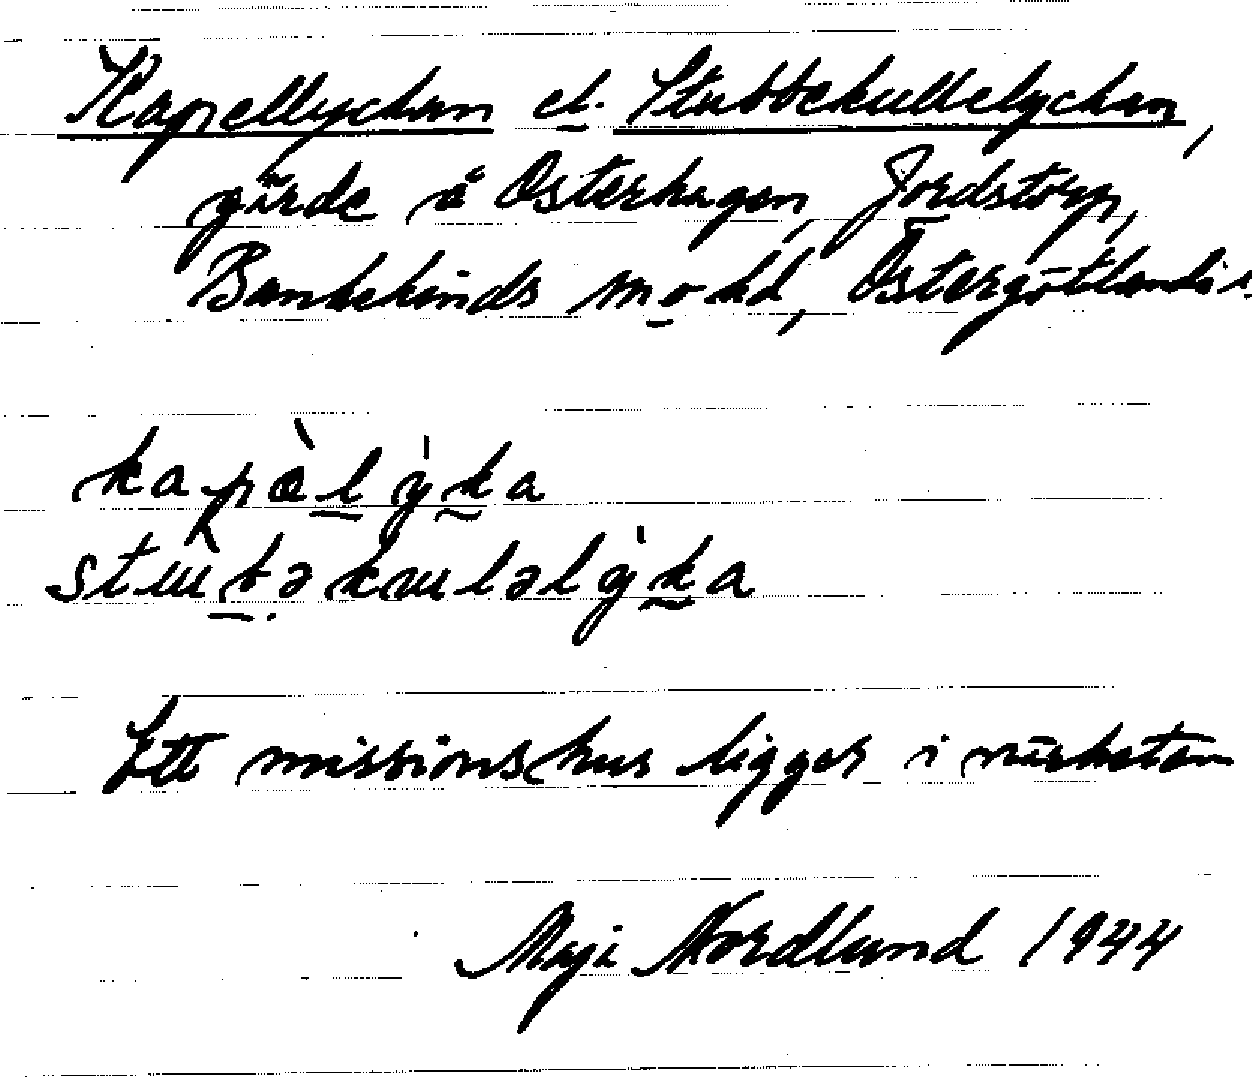 Kapellyckan el. Stubbekullelyckan,
gärde å Österhagen, Jordstorp,
Bankekinds sn o hd, Östergötlands l.
kapæ̀lẏka
stɯ̀bəkɯləlẏka
Ett missionshus ligger i närheten
Maja Nordlund 1944